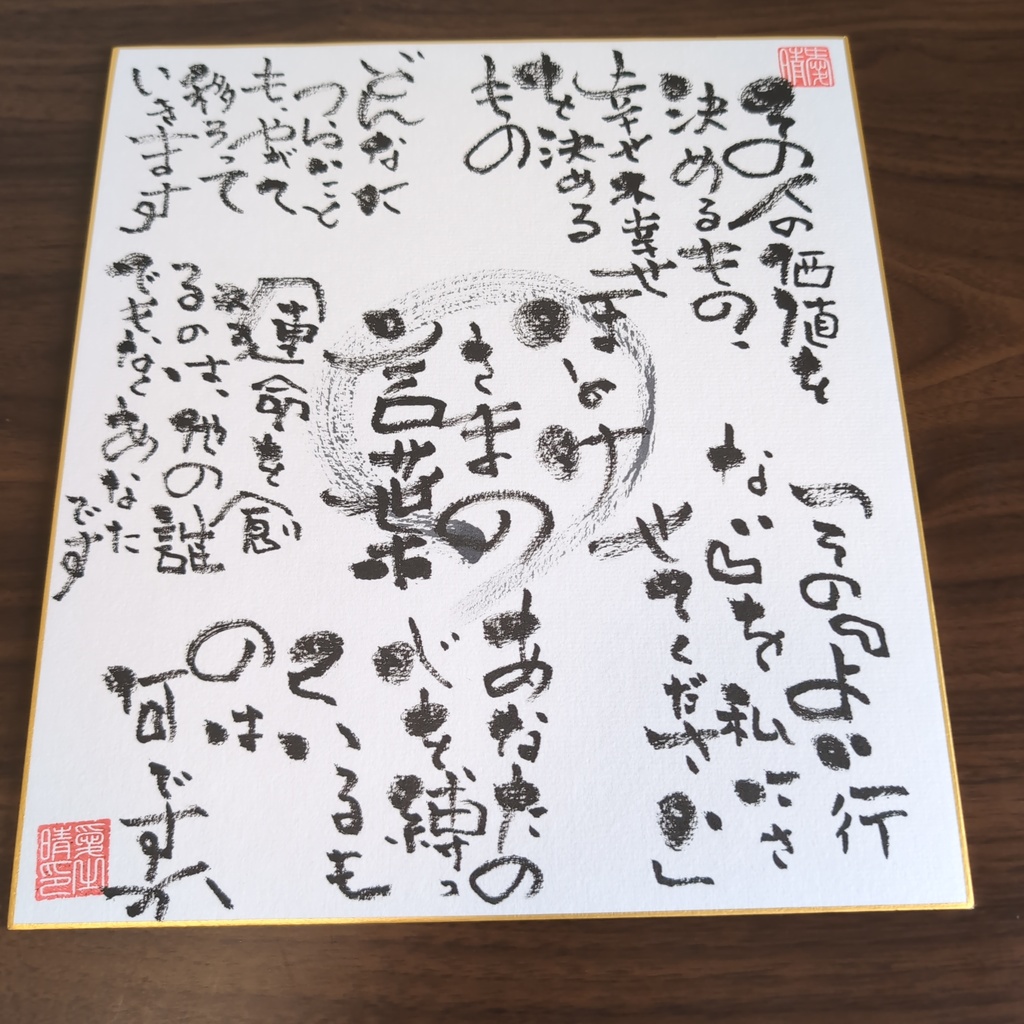 その人の価値を
決めるもの、
幸せ不幸せ
を決める
もの
「その『よい行
ない』を私にさ
せてください」
ほとけ
さまの
言葉
どんなに
つらいこと
も、やがて
移ろって
いきます
あなたの
心を縛っ
ているも
のは
何ですか
運命を
るのは、他の誰
でもなくあなた
です